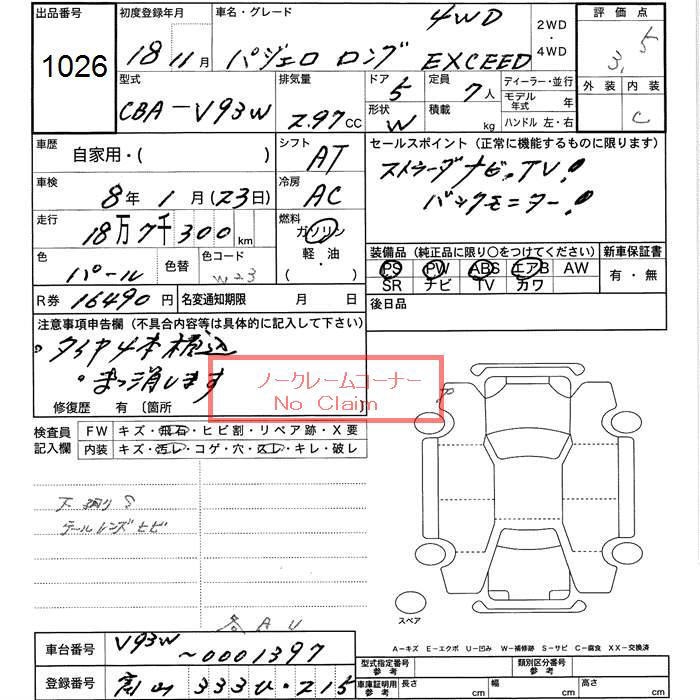 出品番号
1026
初度登録年月
18 11月
車名・グレード
パジェロ ロング 4WD EXCEED
2WD
・
4WD
評価点
3.5
外装 内装
C
型式
CBA-V93W
排気量
2.97cc
ドア
5
定員
7人
形状
W
積載
kg
ディーラー・並行
モデル年式 年
ハンドル 左・右
車歴
自家用・( )
シフト
AT
セールスポイント (正常に機能するものに限ります)
ストラーダナビ、TV!
バックモニター!
車検
8年 1月(23日)
冷房
AC
走行
18万7千300km
燃料
ガソリン
軽・油
( ・ )
色
パール
色替
色コード
W23
装備品 (純正品に限り○をつけてください)
PS PW ABS エアB AW
SR ナビ TV カワ
新車保証書
有・無
R券 16490円
名変通知期限 月 日
後日品
注意事項申告欄 (不具合内容等は具体的に記入して下さい)
。タイヤ4本積込
。まっ消します
ノークレームコーナー
No Claim
修復歴 有 〔箇所 〕
検査員記入欄
FW キズ・飛石・ヒビ割・リペア跡・X要
内装 キズ・汚レ・コゲ・穴・スレ・キレ・破レ
下廻りS
テールレンズヒビ
各AU
スペア
A-キズ E-エクボ U-凹み W-補修跡 S-サビ C-腐食 XX-交換済
車台番号
V93W
~0001397
登録番号
富山 333 ひ・215
型式指定番号
参考
類別区分番号
参考
車庫証明用
参考
長さ cm
幅 cm
高さ cm